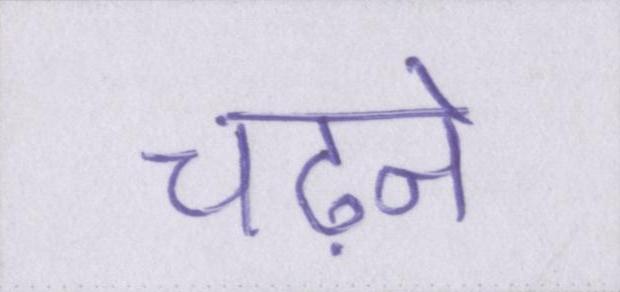 चढ़ने